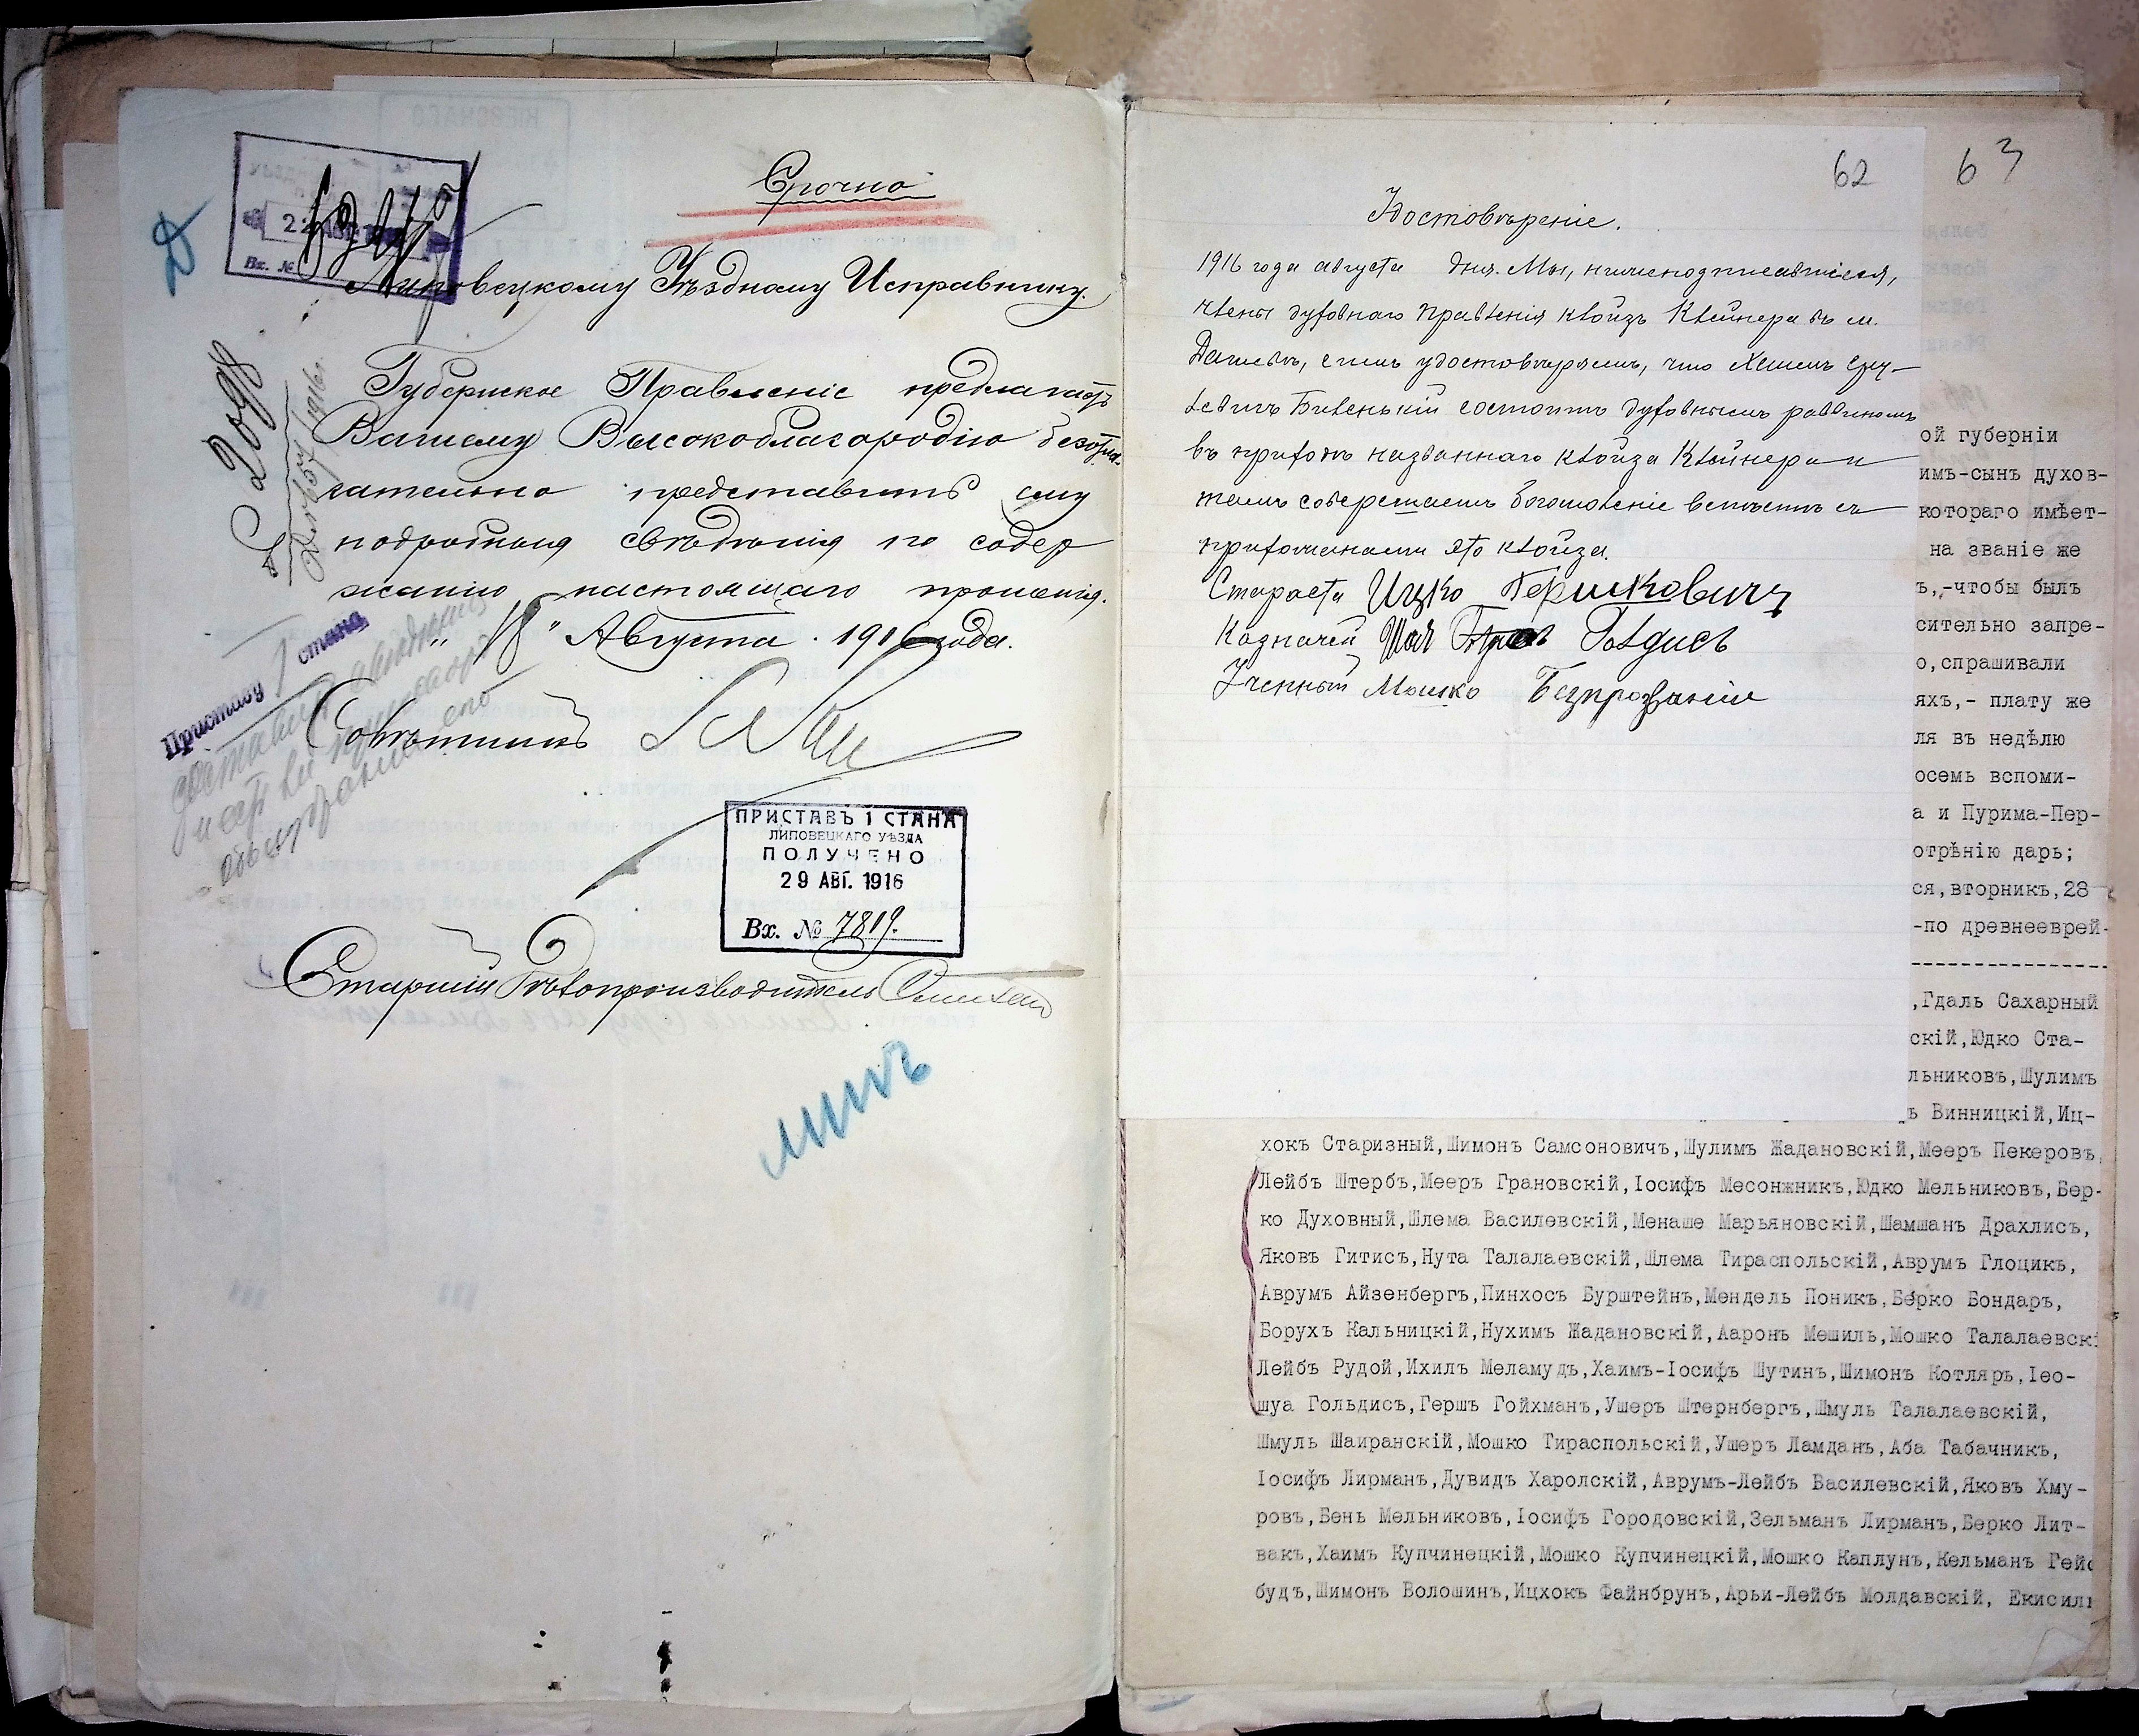 Срочно
22 АВГ
Вх. №
Липовецкому Уѣздному Исправнику.
Губернское Правленіе предлагаетъ
Вашему Высокоблагородію безотла-
гательно представить ему
подробныя свѣдѣнія по содер
жанію настоящаго прошенія.
„18" Августа 1916 года.
1916 г.
Приставу 1 стана
Совѣтникъ
ПРИСТАВЪ 1 СТАНА
ЛИПОВЕЦКАГО УѢЗДА
ПОЛУЧЕНО
29 АВГ. 1916
Вх. № 7819.
Старшій Дѣлопроизводитель
62
63
Удостовѣреніе.
1916 года августа дня. Мы, нижеподписавшіеся,
члены духовнаго правленія клойзъ Клейнера въ м.
Дашевѣ, симъ удостовѣряемъ, что Хаимъ Сру-
левичъ Биленькій состоитъ духовнымъ раввиномъ
въ приходѣ названнаго клойза Клейнера и
тамъ совершаетъ богомоленіе вмѣстѣ съ
прихожанами его клойза.
Староста Ицко Гершковичъ
Казначей Шая Голдисъ
Ученный Мошко Безпрозваній
ой губерніи
имъ-сынъ духов-
котораго имѣет-
на званіе же
ъ,-чтобы былъ
сительно запре-
о,спрашивали
яхъ,- плату же
ля въ недѣлю
осемь вспоми-
а и Пурима-Пер-
отрѣнію дарь;
ся,вторникъ,28
-по древнееврей-
,Гдаль Сахарный
скій,Юдко Ста-
льниковъ,Шулимъ
ъ Винницкій,Иц-
хокъ Старизный,Шимонъ Самсоновичъ,Шулимъ Жадановскій,Мееръ Пекеровъ,
Лейбъ Штербъ,Мееръ Грановскій,Іосифъ Месонжникъ,Юдко Мельниковъ,Бер-
ко Духовный,Шлема Василевскій,Менаше Марьяновскій,Шамшанъ Драхлисъ,
Яковъ Гитисъ,Нута Талалаевскій,Шлема Тираспольскій,Аврумъ Глоцикъ,
Аврумъ Айзенбергъ,Пинхосъ Бурштейнъ,Мендель Поникъ,Берко Бондаръ,
Борухъ Кальницкій,Нухимъ Жадановскій,Ааронъ Мешилъ,Мошко Талалаевскі
Лейбъ Рудой,Ихилъ Меламудъ,Хаимъ-Іосифъ Шутинъ,Шимонъ Котляръ,Іео-
шуа Гольдисъ,Гершъ Гойхманъ,Ушеръ Штернбергъ,Шмуль Талалаевскій,
Шмуль Шаиранскій,Мошко Тираспольскій,Ушеръ Ламданъ,Аба Табачникъ,
Іосифъ Лирманъ,Дувидъ Харолскій,Аврумъ-Лейбъ Василевскій,Яковъ Хму-
ровъ,Бень Мельниковъ,Іосифъ Городовскій,Зельманъ Лирманъ,Берко Лит-
вакъ,Хаимъ Купчинецкій,Мошко Купчинецкій,Мошко Каплунъ,Кельманъ Гейс
будъ,Шимонъ Волошинъ,Ицхокъ Файнбрунъ,Арьи-Лейбъ Молдавскій, Екисиль